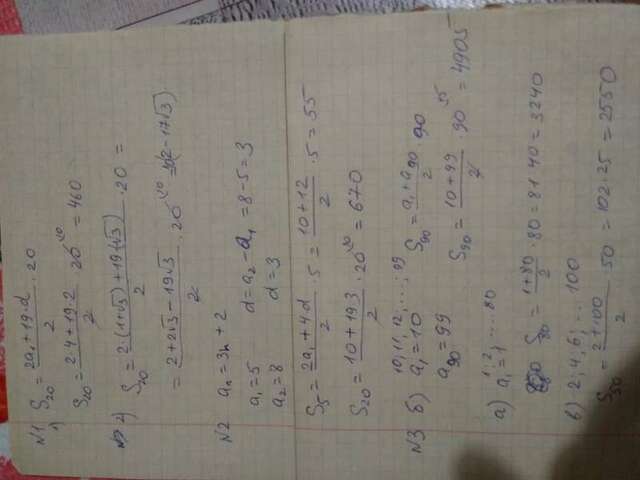 N1 1) S₂₀ = (2a₁ + 19·d)/2 · 20
S₂₀ = (2·4 + 19·2)/2 · 20 ¹⁰ = 460
2) S₂₀ = (2·(1+√3) + 19(√3))/2 · 20 =
= (2 + 2√3 − 19√3)/2 · 20 ¹⁰ = 10(2 − 17√3)
N2 aₙ = 3n + 2
a₁ = 5 d = a₂ − a₁ = 8 − 5 = 3
a₂ = 8 d = 3
S₅ = (2a₁ + 4·d)/2 · 5 = (10 + 12)/2 · 5 = 55
S₂₀ = (10 + 19·3)/2 · 20 ¹⁰ = 670
10; 11; 12; ...; 99
N3 б) a₁ = 10 S₉₀ = (a₁ + a₉₀)/2 · 90
a₉₀ = 99 S₉₀ = (10 + 99)/2 · 90 = 4905
1; 2; .... 80
а) a₁ = 1
S₈₀ = (1 + 80)/2 · 80 = 81·40 = 3240
в) 2; 4; 6; ... 100
S₅₀ = (2 + 100)/2 · 50 = 102·25 = 2550